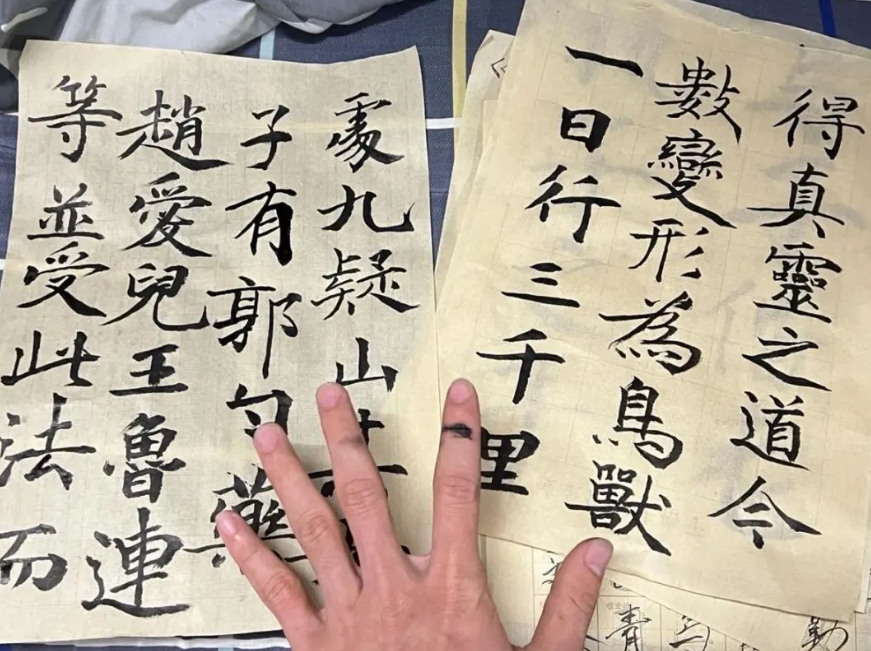 得真靈之道今
數變形為鳥獸
一日行三千里
處九疑山
子有郭勺藥
趙愛兒王魯連
等並受此法而
青